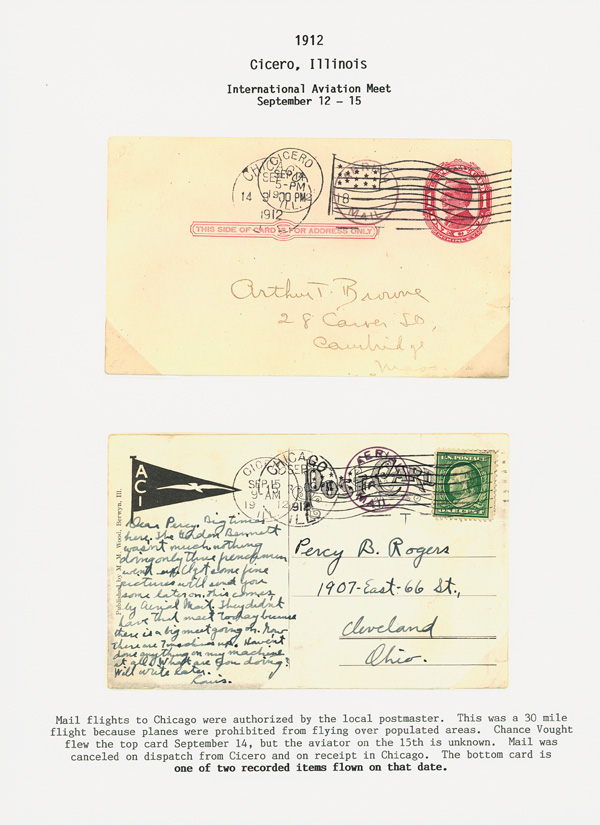 1912
Cicero, Illinois
International Aviation Meet
September 12 - 15
CICERO
SEP 14
5-PM
1912
ILL.
14 9-00 PM
1912
AERIAL
18
MAIL
THIS SIDE OF CARD IS FOR ADDRESS ONLY
Arthur T. Browne
28 Carver St,
Cambridge
Mass.
ACI
CHICAGO
SEP
1912
ILL.
SEP 15
9-AM
19 12
AERIAL
MAIL
U.S. POSTAGE
Published by M. M. Wood, Berwyn, Ill.
Dear Percy. Big times
here. The Gordon Bennett
wasn't much, nothing
doing only three frenchmen
went up. Got some fine
pictures will send you
some later on. This comes
by Aerial Mail. They didn't
have that meet today because
there is a big meet going on. Now
there are 7 machines up. Haven't
done anything on my machine
at all. What are you doing?
Will write later.
Louis.
Percy B. Rogers
1907-East-66 St.,
Cleveland
Ohio.
Mail flights to Chicago were authorized by the local postmaster. This was a 30 mile
flight because planes were prohibited from flying over populated areas. Chance Vought
flew the top card September 14, but the aviator on the 15th is unknown. Mail was
canceled on dispatch from Cicero and on receipt in Chicago. The bottom card is
one of two recorded items flown on that date.